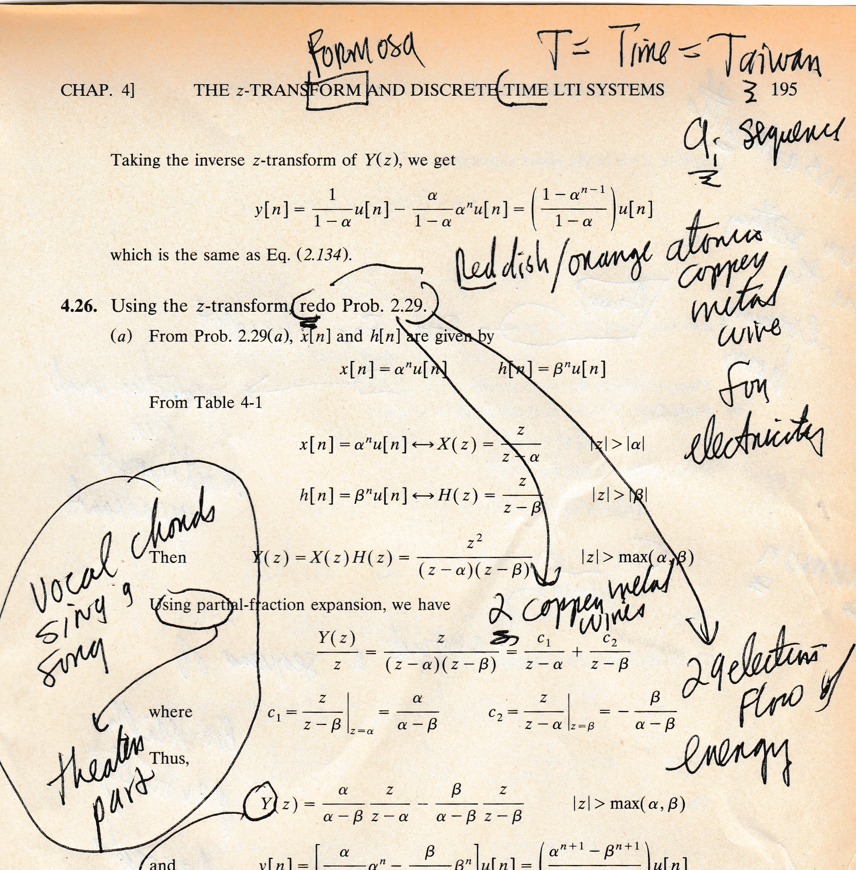 Formosa
T = Time = Taiwan
CHAP. 4] THE z-TRANSFORM AND DISCRETE-TIME LTI SYSTEMS 195
sequence
Taking the inverse z-transform of Y(z), we get
y[n] = \frac{1}{1-α}u[n] - \frac{α}{1-α}α^n u[n] = \left(\frac{1-α^{n-1}}{1-α}\right)u[n]
which is the same as Eq. (2.134).
Reddish/orange atomic
copper
metal
wire
for
electricity
4.26. Using the z-transform, redo Prob. 2.29.
(a) From Prob. 2.29(a), x[n] and h[n] are given by
x[n] = α^n u[n] h[n] = β^n u[n]
From Table 4-1
x[n] = α^n u[n] ↔ X(z) = \frac{z}{z-α} |z| > |α|
h[n] = β^n u[n] ↔ H(z) = \frac{z}{z-β} |z| > |β|
Then Y(z) = X(z)H(z) = \frac{z^2}{(z-α)(z-β)} |z| > max(α, β)
Using partial-fraction expansion, we have
2 copper metal
wires
\frac{Y(z)}{z} = \frac{z}{(z-α)(z-β)} = \frac{c_1}{z-α} + \frac{c_2}{z-β}
where c_1 = \frac{z}{z-β}|_{z=α} = \frac{α}{α-β} c_2 = \frac{z}{z-α}|_{z=β} = -\frac{β}{α-β}
vocal chords
sing a
song
theaters
part
29 electrons
flow of
energy
Thus,
Y(z) = \frac{α}{α-β} \frac{z}{z-α} - \frac{β}{α-β} \frac{z}{z-β} |z| > max(α, β)
and y[n] = [\frac{α}{}α^n - \frac{β}{}β^n]u[n] = (\frac{α^{n+1} - β^{n+1}}{})u[n]